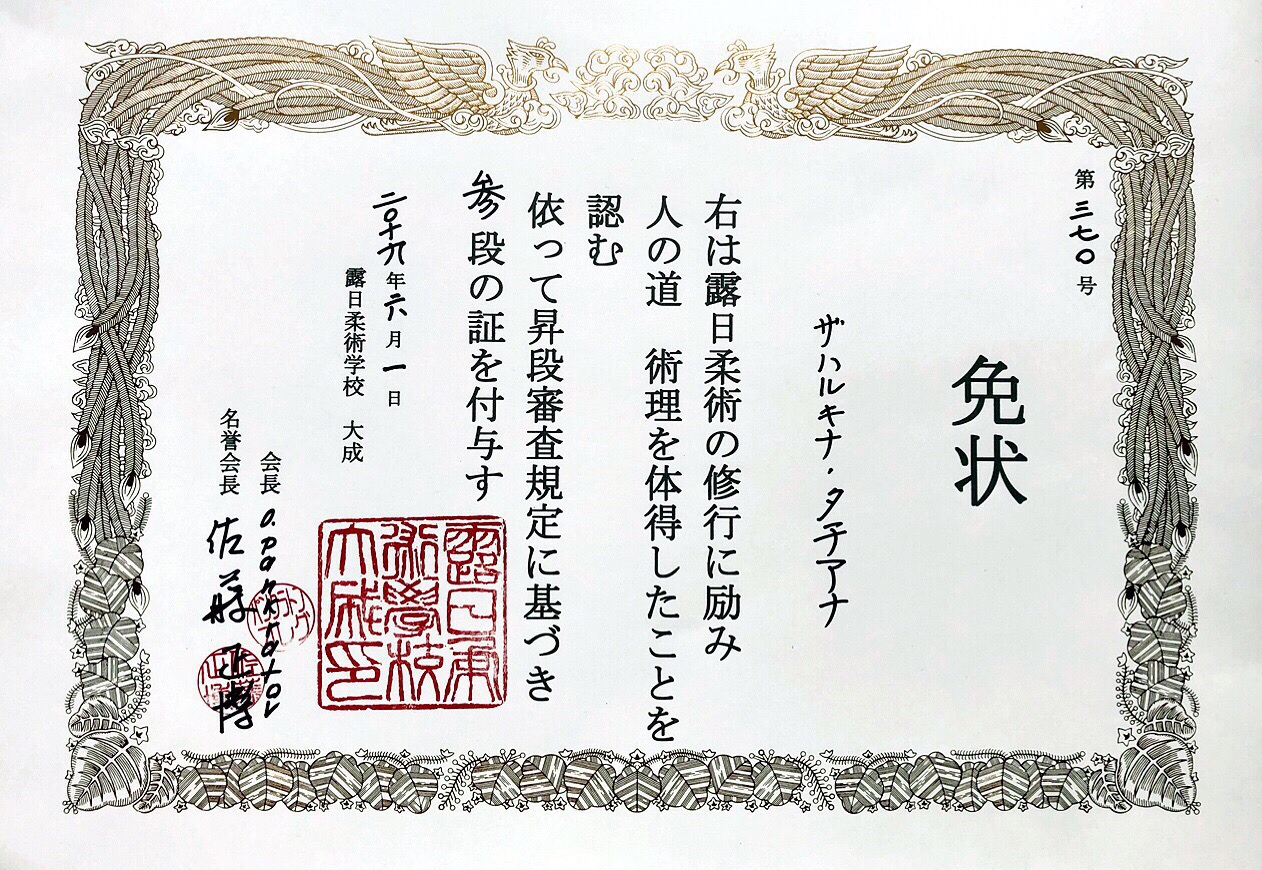 第三七〇号
免状
ザハルキナ・タチアナ
右は露日柔術の修行に励み
人の道　術理を体得したことを
認む
依って昇段審査規定に基づき
参段の証を付与す
二〇十九年六月一日
露日柔術学校　大成
露日柔術學校大成印
会長 O.Pankratov
名誉会長 佐藤 正